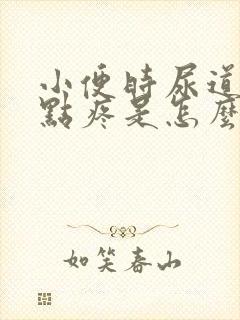 小便時尿道
點疼是怎麼
如笑春山